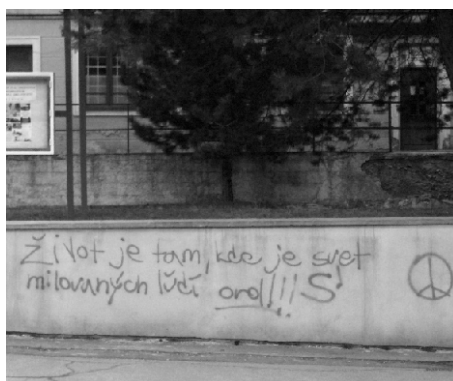 Život je tam, kde je svet
milovaných ľúdí oro!!!! S